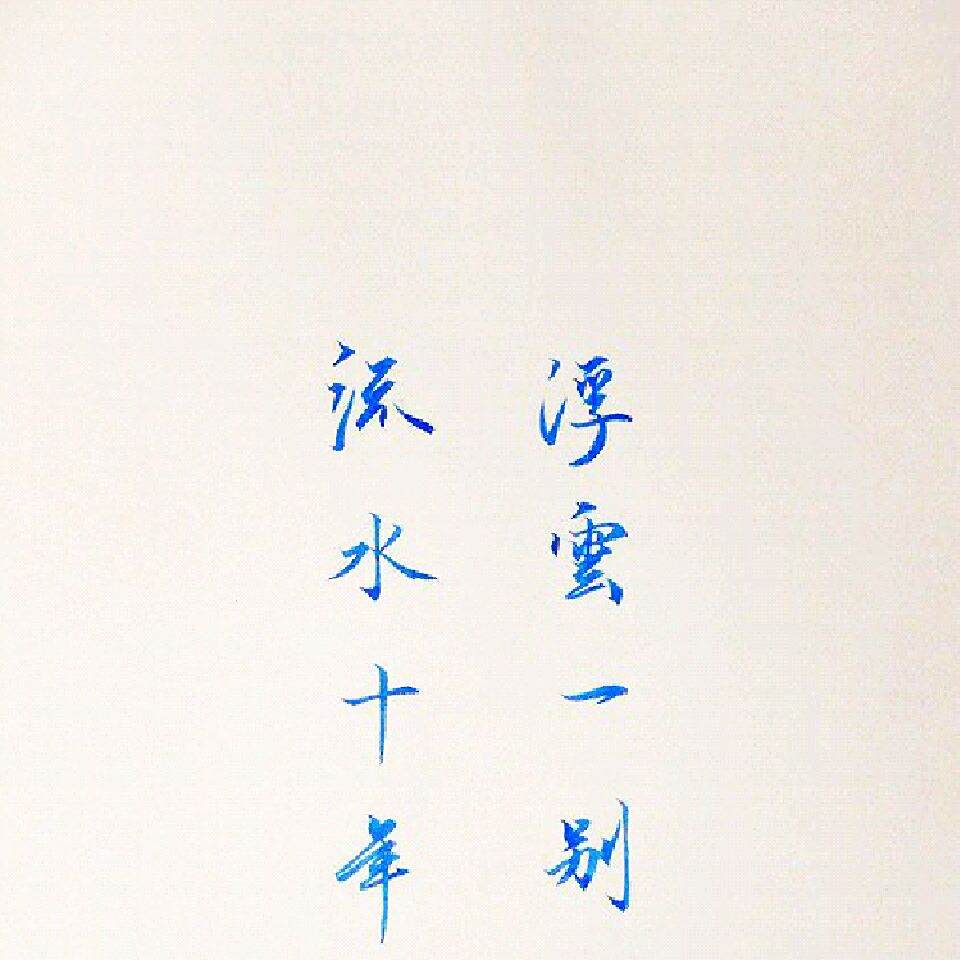 浮雲一别
流水十年